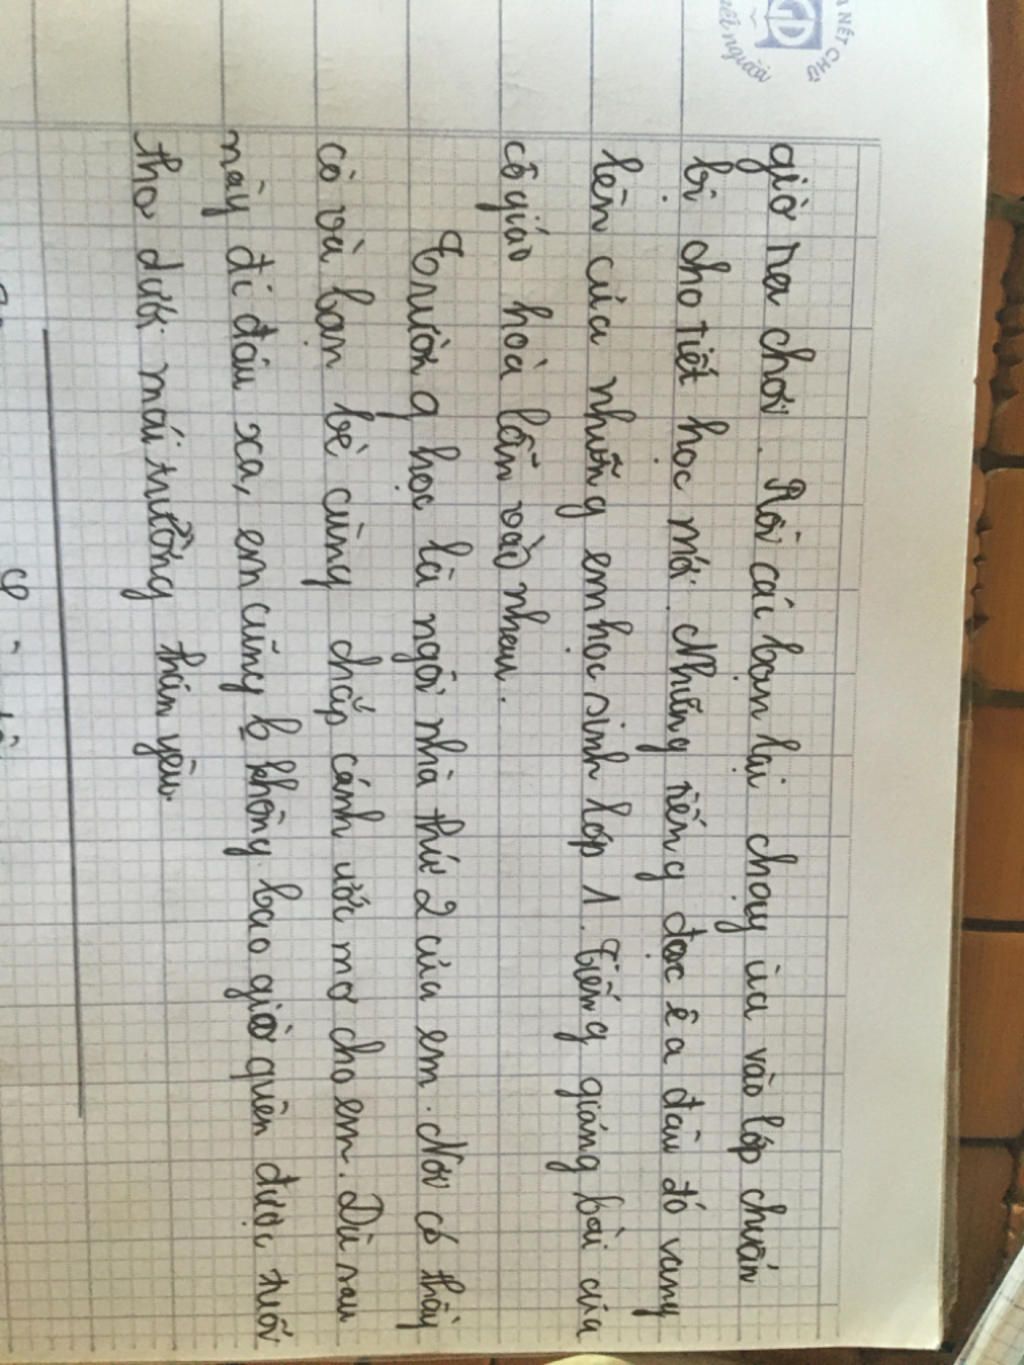 NÉT CHỮ
nết người
giờ ra chơi. Rồi các bạn lại chạy ùa vào lớp chuẩn
bị cho tiết học mới. Những tiếng đọc ê a đâu đó vang
lên của những em học sinh lớp 1. Tiếng giảng bài của
cô giáo hoà lẫn vào nhau.
Trường học là ngôi nhà thứ 2 của em. Nơi có thầy
cô và bạn bè cùng chắp cánh ước mơ cho em. Dù sau
này đi đâu xa, em cũng không bao giờ quên được tuổi
thơ dưới mái trường thân yêu